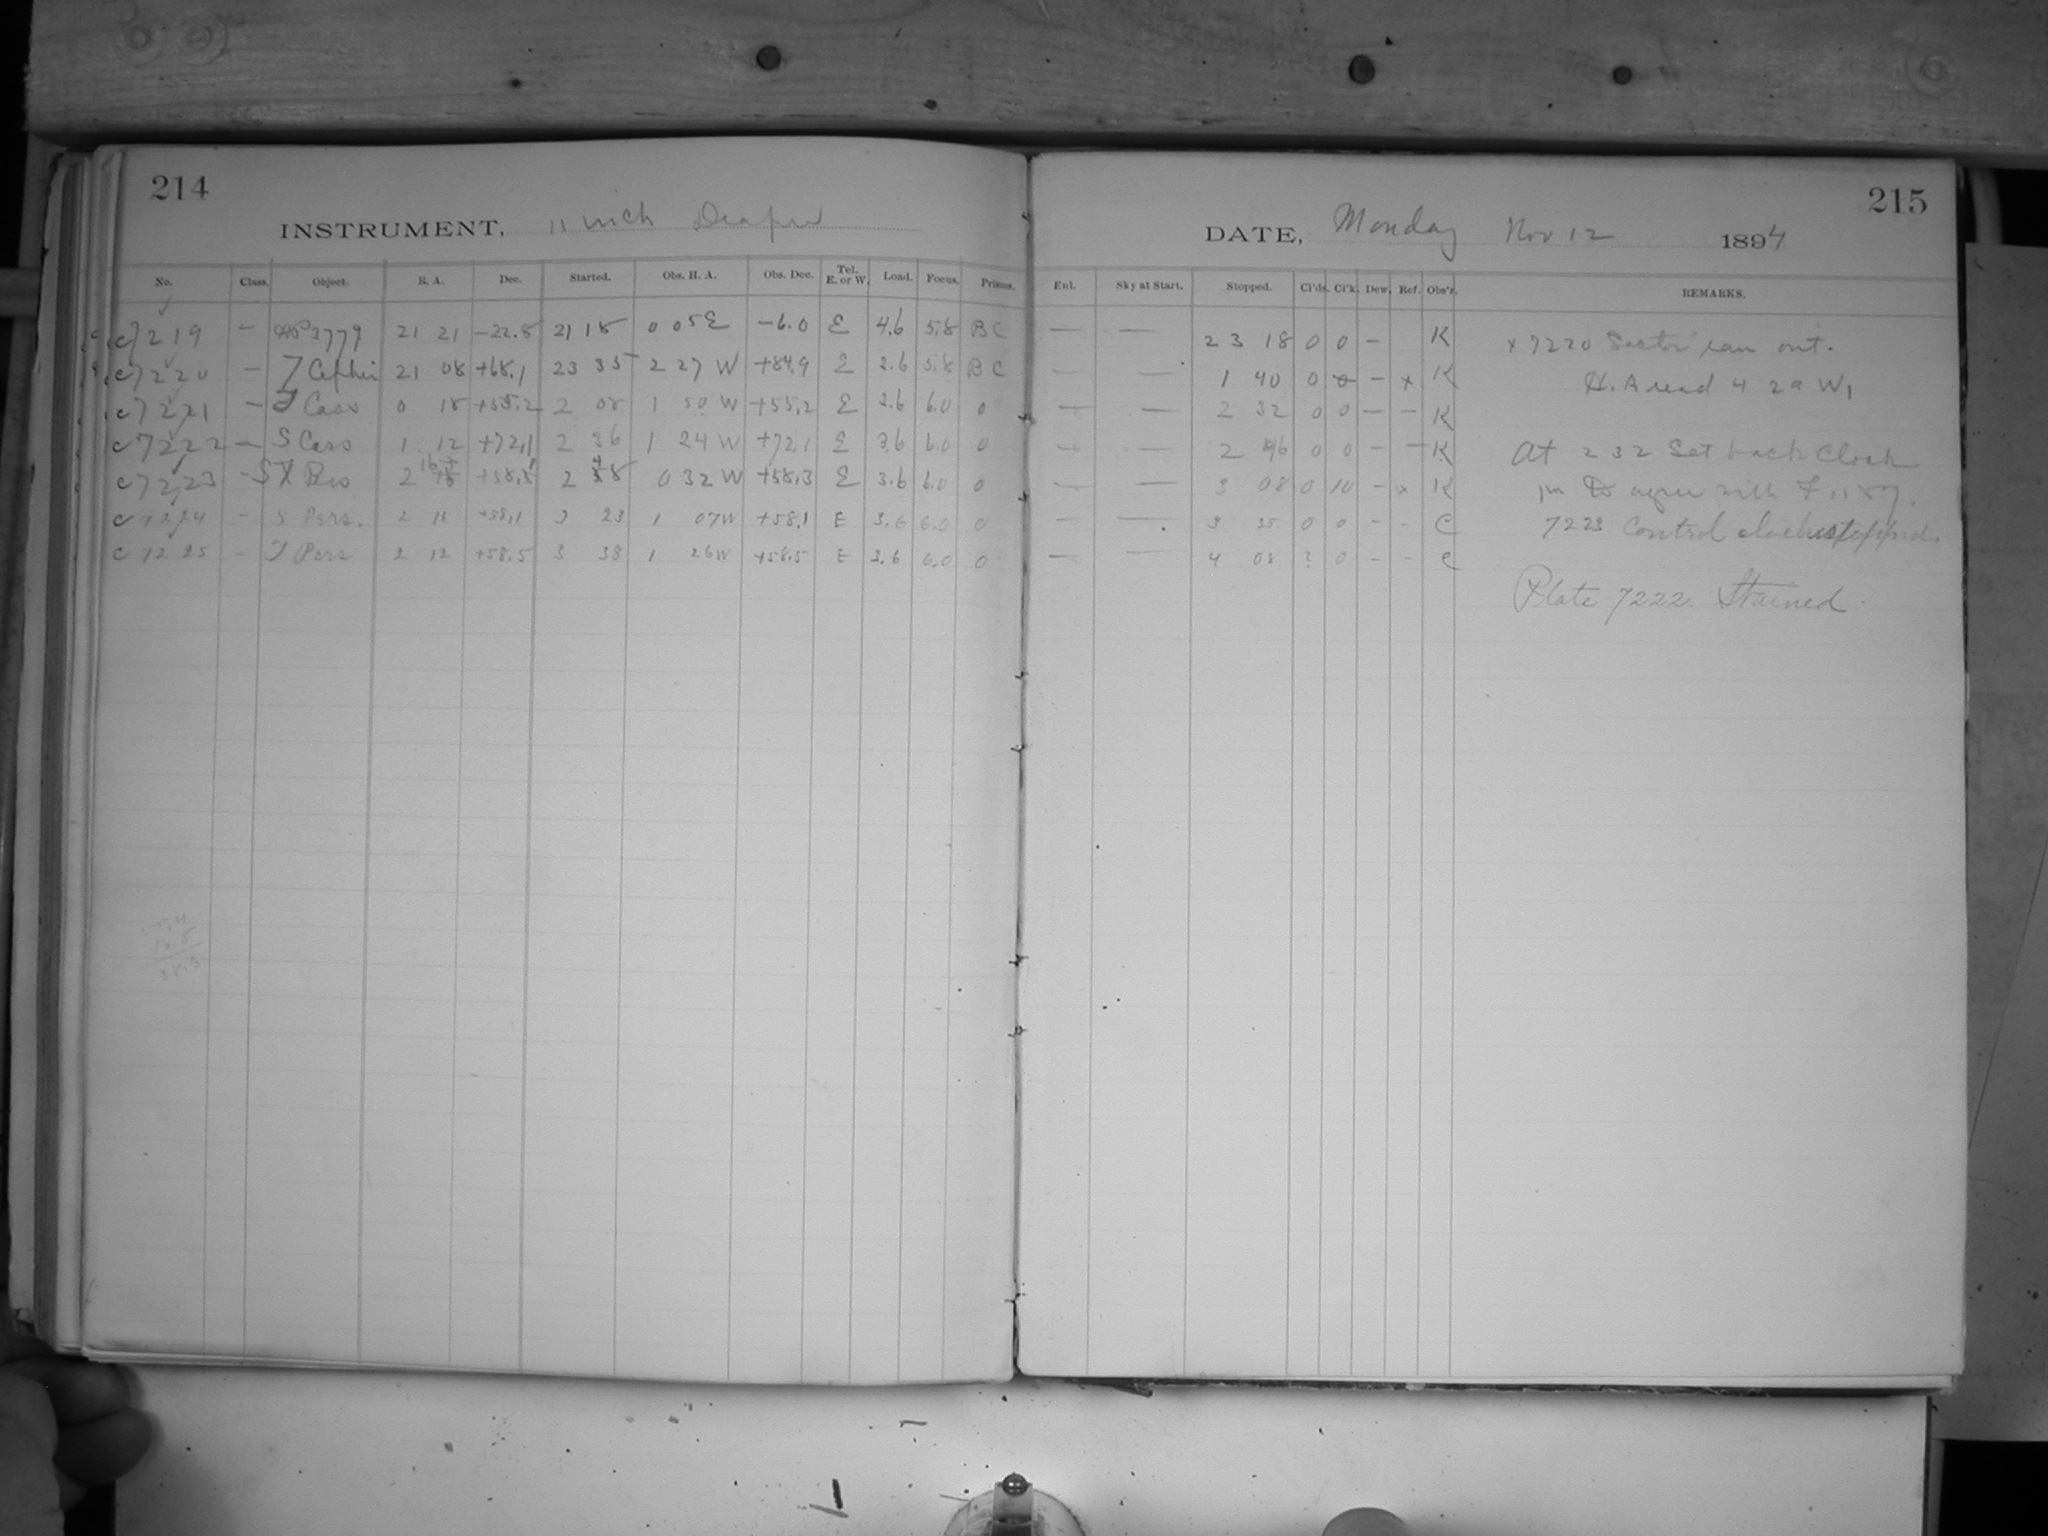 214
INSTRUMENT, 11 inch Draper
No. Class. Object. R. A. Dec. Started. Obs. H. A. Obs. Dec. Tel. E. or W. Load. Focus. Prisms.
c7219 — 3779 21 21 -22.8 21 18 0 05 E -6.0 E 4.6 5.8 B C
c7220 — T Cephei 21 08 +68.1 23 35 2 27 W +84.9 E 3.6 5.8 B C
c7221 — T Cass 0 18 +55.2 2 08 1 50 W +55.2 E 3.6 6.0 0
c7222 — S Cass 1 12 +72.1 2 36 1 24 W +72.1 E 3.6 6.0 0
c7223 - 2 2 0 32 W +58.3 E 3.6 6.0 0
c7224 — S Pers. 2 16 +58.1 3 23 1 07 W +58.1 E 3.6 6.0 0
c7225 — T Pers 2 12 +58.5 3 38 1 26 W +58.5 E 3.6 6.0 0
215
DATE, Monday Nov 12 1894
Enl. Sky at Start. Stopped. Cl'ds. Cl'k. Dew. Ref. Obs'r. REMARKS.
— — 23 18 0 0 — K x 7220 Sector ran out.
— — 1 40 0 0 — x K H. A read 4 29 W,
— — 2 32 0 0 — — K
— — 2 46 0 0 — — K At 2 32 Set back Clock
— — 3 08 0 10 — x K 1m to agree with 1187.
— — 3 35 0 0 - - C 7223 Control clock stopped
— — 4 08 ? 0 - - C
Plate 7222. Stained.